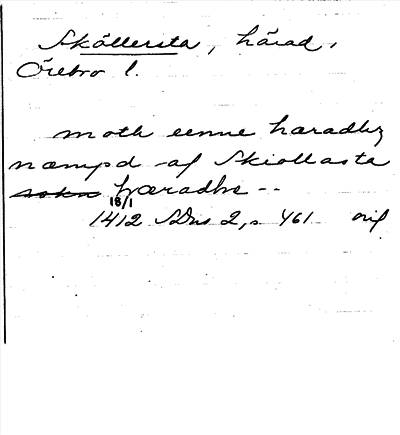 Sköllersta, härad,
Örebro l.
moth eenne hæradhz
næmpd af Skiollasta
sokn hæradhe --
18/1
1412 SDns 2, s 461 orig